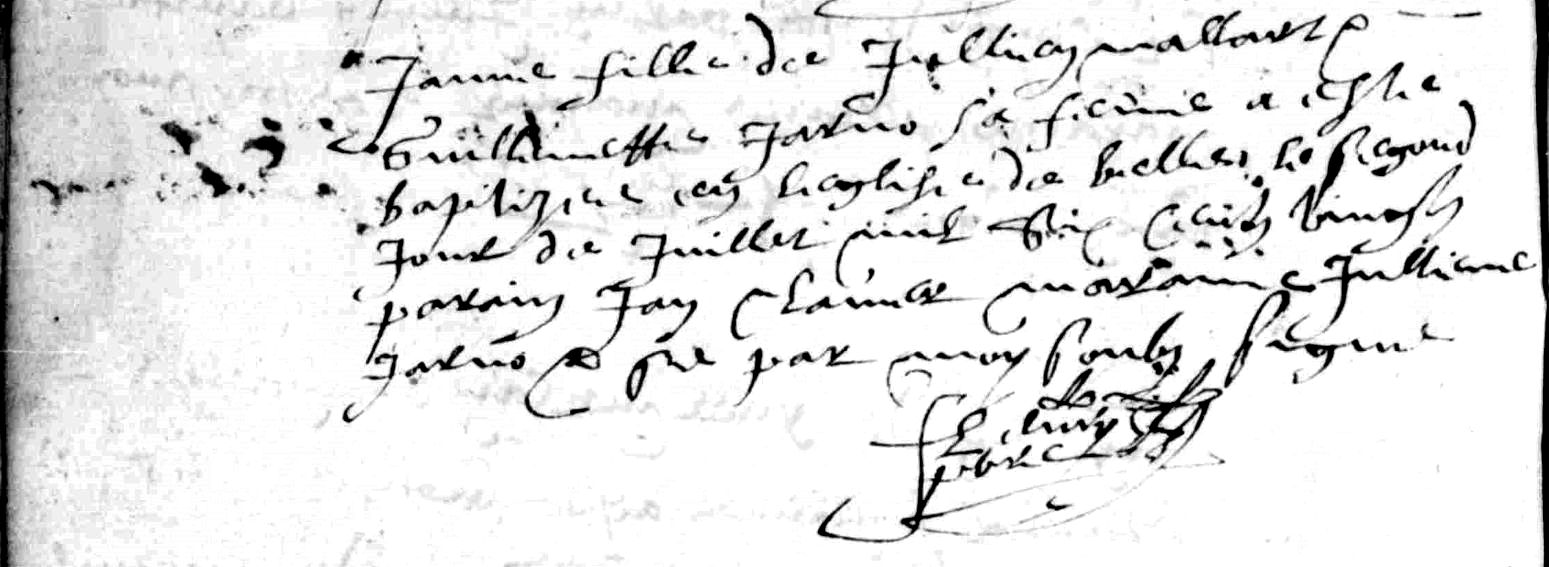 Janne fille de Jullien mallart &
Guillemette Jarno sa femme a este
baptizee en leglise de le segond
Jour de Juillet mil Six centz vingt
parain Jan maraine Jullienne
Jarno & par moy soubz signe